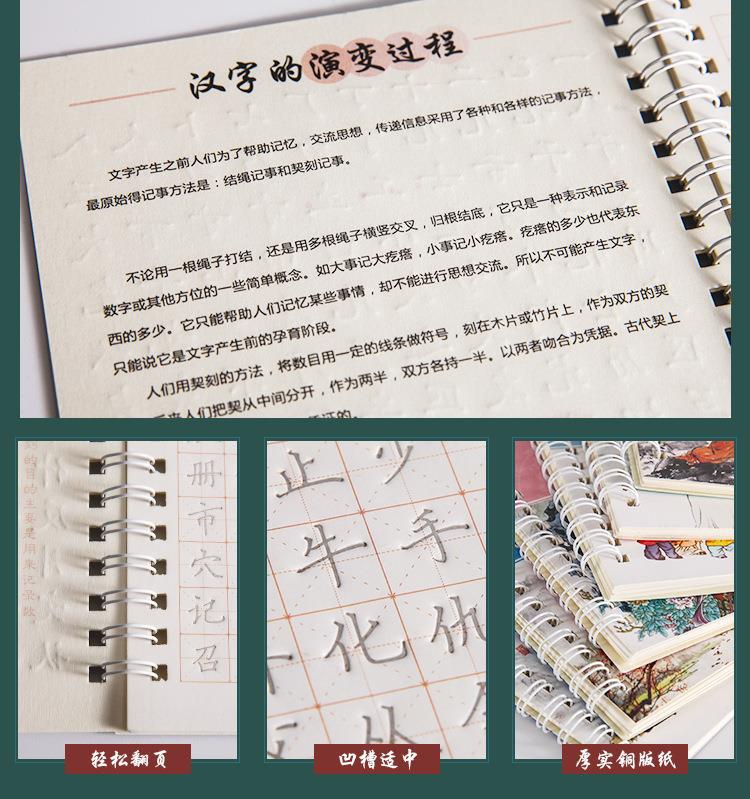 汉字的演变过程
文字产生之前人们为了帮助记忆，交流思想，传递信息采用了各种和各样的记事方法，
最原始得记事方法是：结绳记事和契刻记事。
不论用一根绳子打结，还是用多根绳子横竖交叉，归根结底，它只是一种表示和记录
数字或其他方位的一些简单概念。如大事记大疙瘩，小事记小疙瘩。疙瘩的多少也代表东
西的多少。它只能帮助人们记忆某些事情，却不能进行思想交流。所以不可能产生文字，
只能说它是文字产生前的孕育阶段。
人们用契刻的方法，将数目用一定的线条做符号，刻在木片或竹片上，作为双方的契
人们把契从中间分开，作为两半，双方各持一半。以两者吻合为凭据。古代契上
的目的主要是用来记录
册
市
穴
记
召
止 少
牛 手
化 仇
轻松翻页
凹槽适中
厚实铜版纸